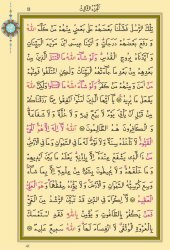 الجزء الثالث
تِلْكَ الرُّسُلُ فَضَّلْنَا بَعْضَهُمْ عَلَى بَعْضٍ مِنْهُمْ مَنْ كَلَّمَ اللَّهُ
وَرَفَعَ بَعْضَهُمْ دَرَجَاتٍ وَآتَيْنَا عِيسَى ابْنَ مَرْيَمَ الْبَيِّنَاتِ
وَأَيَّدْنَاهُ بِرُوحِ الْقُدُسِ وَلَوْ شَاءَ اللَّهُ مَا اقْتَتَلَ الَّذِينَ
مِنْ بَعْدِهِمْ مِنْ بَعْدِ مَا جَاءَتْهُمُ الْبَيِّنَاتُ وَلَكِنِ اخْتَلَفُوا فَمِنْهُمْ
مَنْ آمَنَ وَمِنْهُمْ مَنْ كَفَرَ وَلَوْ شَاءَ اللَّهُ مَا اقْتَتَلُوا وَلَكِنَّ اللَّهَ
يَفْعَلُ مَا يُرِيدُ يَا أَيُّهَا الَّذِينَ آمَنُوا أَنْفِقُوا مِمَّا رَزَقْنَاكُمْ
مِنْ قَبْلِ أَنْ يَأْتِيَ يَوْمٌ لَا بَيْعٌ فِيهِ وَلَا خُلَّةٌ وَلَا شَفَاعَةٌ
وَالْكَافِرُونَ هُمُ الظَّالِمُونَ اللَّهُ لَا إِلَهَ إِلَّا هُوَ الْحَيُّ
الْقَيُّومُ لَا تَأْخُذُهُ سِنَةٌ وَلَا نَوْمٌ لَهُ مَا فِي السَّمَاوَاتِ وَمَا فِي الْأَرْضِ
مَنْ ذَا الَّذِي يَشْفَعُ عِنْدَهُ إِلَّا بِإِذْنِهِ يَعْلَمُ مَا بَيْنَ أَيْدِيهِمْ
وَمَا خَلْفَهُمْ وَلَا يُحِيطُونَ بِشَيْءٍ مِنْ عِلْمِهِ إِلَّا بِمَا شَاءَ
وَسِعَ كُرْسِيُّهُ السَّمَاوَاتِ وَالْأَرْضَ وَلَا يَئُودُهُ حِفْظُهُمَا وَهُوَ الْعَلِيُّ
الْعَظِيمُ لَا إِكْرَاهَ فِي الدِّينِ قَدْ تَبَيَّنَ الرُّشْدُ مِنَ الْغَيِّ
فَمَنْ يَكْفُرْ بِالطَّاغُوتِ وَيُؤْمِنْ بِاللَّهِ فَقَدِ اسْتَمْسَكَ
بِالْعُرْوَةِ الْوُثْقَى لَا انْفِصَامَ لَهَا وَاللَّهُ سَمِيعٌ عَلِيمٌ